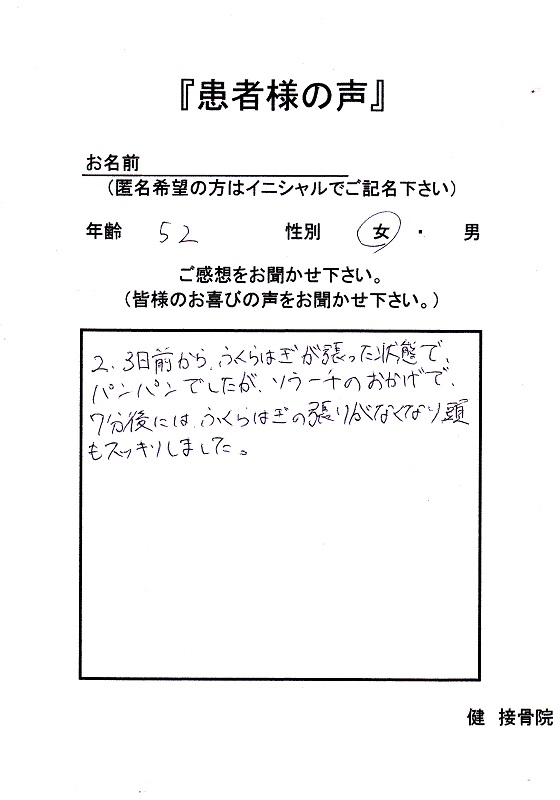 『患者様の声』
お名前
(匿名希望の方はイニシャルでご記名下さい)
年齢 52 性別 女 ・ 男
ご感想をお聞かせ下さい。
(皆様のお喜びの声をお聞かせ下さい。)
2、3日前から、ふくらはぎが張った状態で、
パンパンでしたが、ソラーチのおかげで、
7分後には、ふくらはぎの張りがなくなり頭
もスッキリしました。
健 接骨院